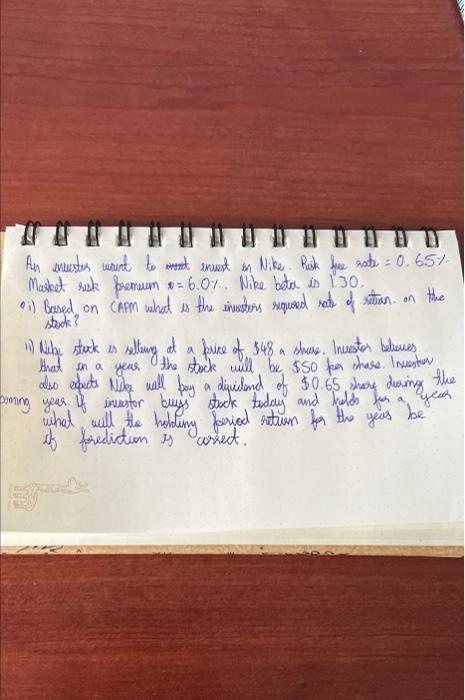 An investor want to invest in Nike. Risk free rate = 0.65%.
Market risk premium = 6.0%. Nike beta is 1.30.
i) Based on CAPM what is the investors required rate of return. on the
stock?
ii) Nike stock is selling at a price of $48 a share. Investor believes
that in a year the stock will be $50 per share. Investor
also expects Nike will pay a dividend of $0.65 share during the
coming year. If investor buys stock today and holds for a year
what will the holding period return for the year be
if prediction is correct.